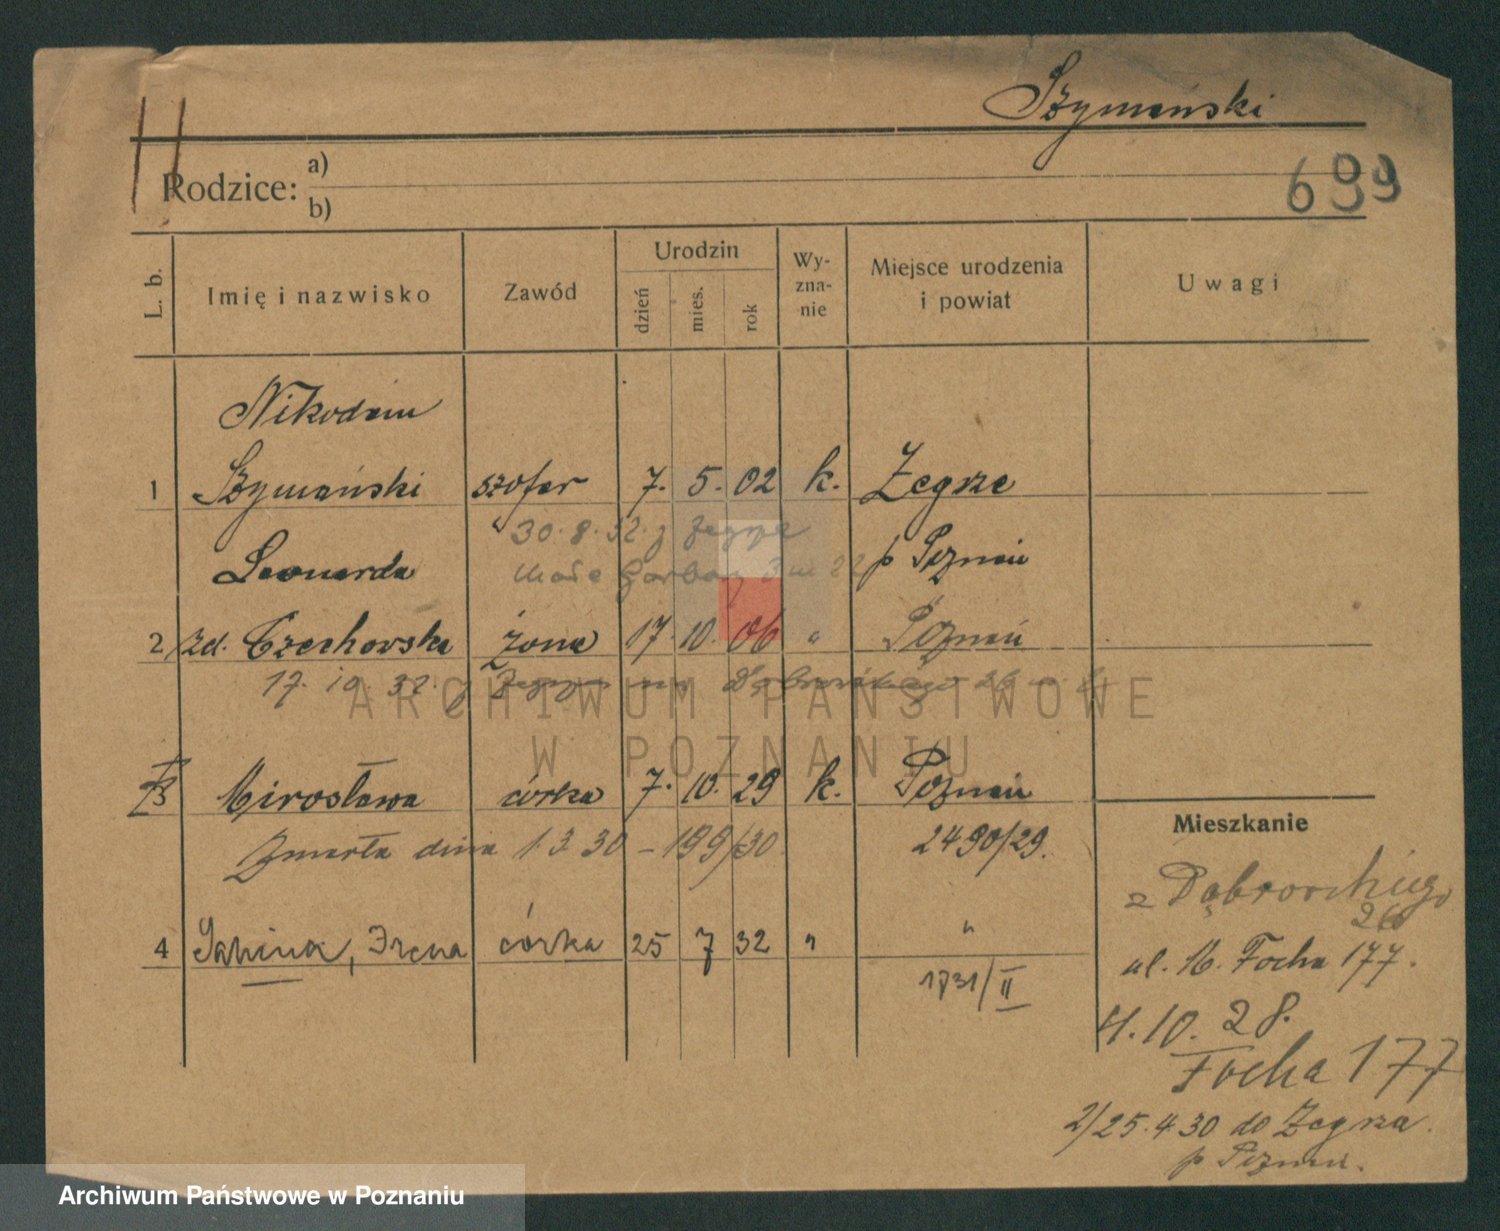 Szymański
Rodzice: a)
b)
699
L. b. Imię i nazwisko Zawód Urodzin dzień mies. rok Wy-zna-nie Miejsce urodzenia i powiat Uwagi
Nikodem
1 Szymański szofer 7. 5. 02 k. Zegrze
30.8.32. z Zegrze
Leonarda p Poznań
Małe Garbary 3 m 22
2 zd. Czechowska żona 17. 10. 06 " Poznań
17. 10. 32. z Dąbrowskiego 26
ARCHIWUM PAŃSTWOWE
W POZNANIU
3 Mirosława córka 7. 10. 29 k. Poznań
Zmarła dnia 1 3 30 – 199/30 2490/29.
4 Janina, Irena córka 25 7 32 " "
1731/II
Mieszkanie
z Dąbrowskiego
26
ul. M. Focha 177.
4. 10. 28.
Focha 177
2/25.4.30 do Zegrza.
p Poznań.
Archiwum Państwowe w Poznaniu